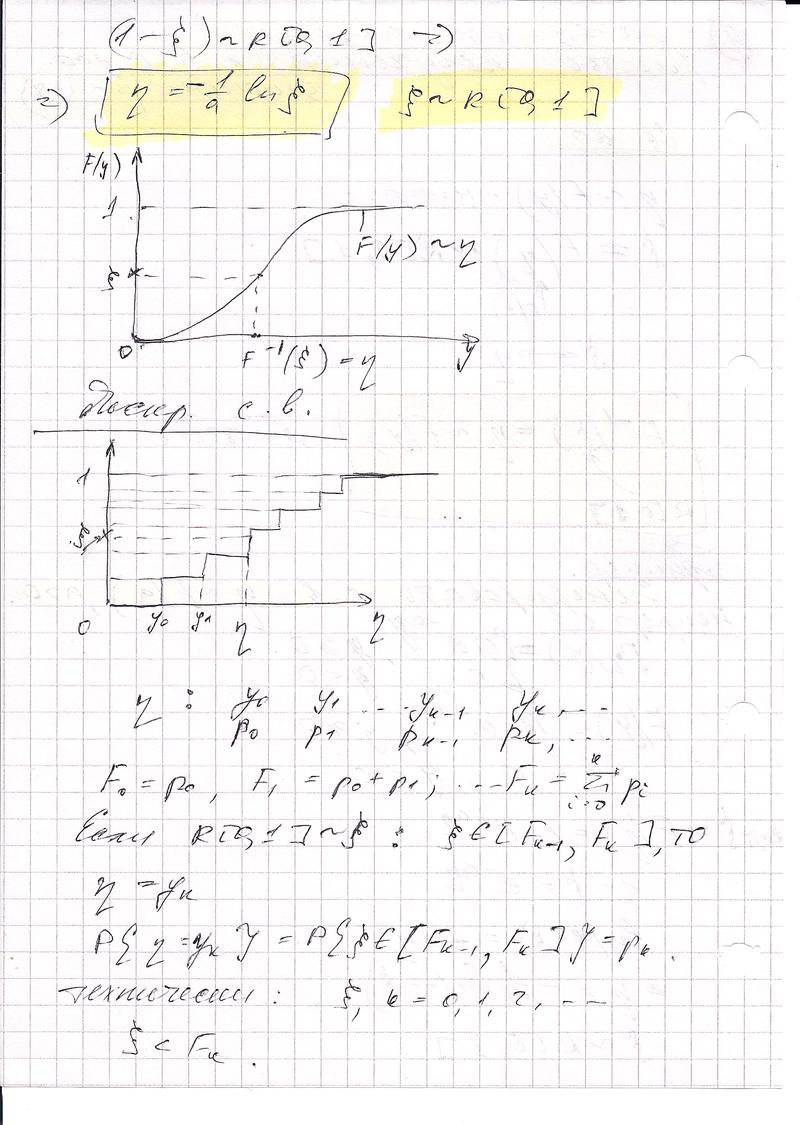 (1-ξ) ~ R[0,1] ⇒
⇒ η = -1/a ln ξ ξ ~ R[0,1]
F(y)
1
F(y) ~ η
ξ
0 F⁻¹(ξ) = η y
Дискр. с.в.
1
ξ
0 y₀ y₁ η η
η : y₀ y₁ ... yₖ₋₁ yₖ, ...
p₀ p₁ pₖ₋₁ pₖ, ...
F₀ = p₀, F₁ = p₀ + p₁; ... Fₖ = Σᵢ₌₀ᵏ pᵢ
Если R[0,1] ~ ξ : ξ ∈ [Fₖ₋₁, Fₖ], то
η = yₖ
P{η = yₖ} = P{ξ ∈ [Fₖ₋₁, Fₖ]} = pₖ.
технически : ξ, k = 0, 1, 2, ...
ξ < Fₖ.